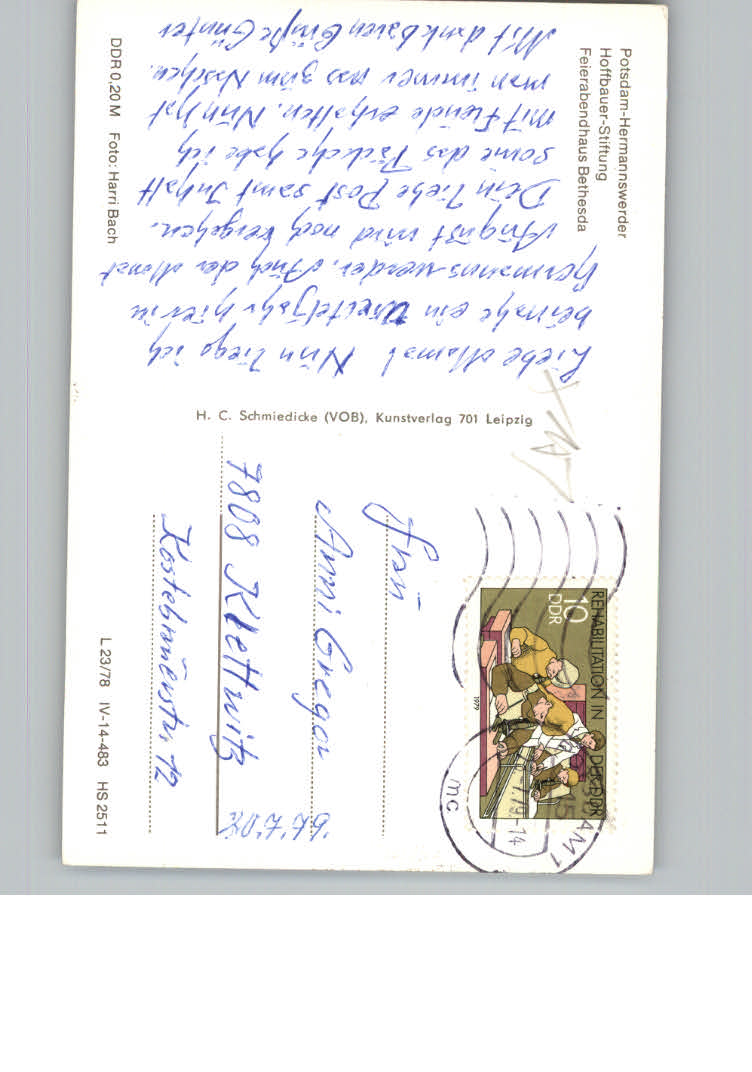 Potsdam-Hermannswerder
Hoffbauer-Stiftung
Feierabendhaus Bethesda
Liebe Mama! Nun liege ich
beinahe ein Vierteljahr hier in
Hermannswerder. Auch der Monat
August wird noch vergehen.
Dein liebe Post samt Inhalt
sowie das Päckche habe ich
mit Freude erhalten. Nun hat
man immer was zum Naschen.
Mit dankbaren Grüße Günter
DDR 0,20 M Foto: Harri Bach
H. C. Schmiedicke (VOB), Kunstverlag 701 Leipzig
REHABILITATION IN DER DDR
10
DDR
1979
AM 1
79-14
mc
Frau
Anni Gregor
7808 Klettwitz
Kostebrauerstr. 12
L 23/78 IV-14-483 HS 2511